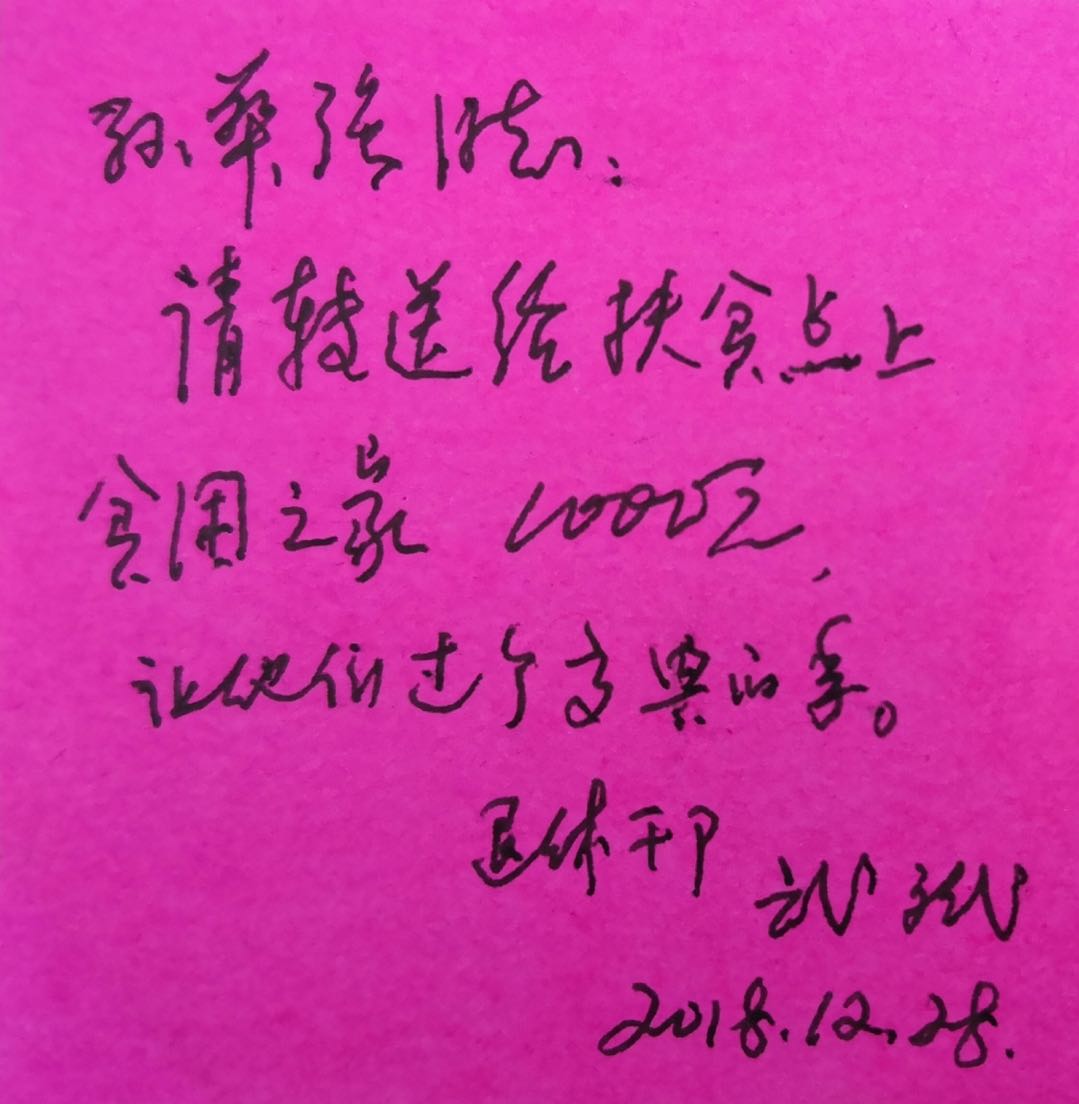 孙华强同志：
请转送给扶贫点上
贫困之家 1000元，
让他们过个高兴的年。
退休干部 武
2018.12.28.